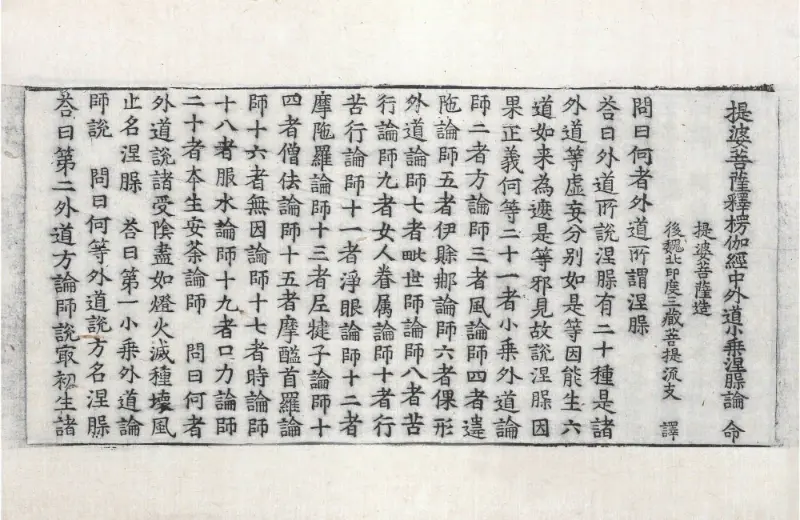 提婆菩薩釋楞伽經中外道小乘涅槃論 命
提婆菩薩造
後魏北印度三藏菩提流支 譯
問曰何者外道所謂涅槃
荅曰外道所說涅槃有二十種是諸
外道等虛妄分別如是等因能生六
道如来為遮是等邪見故說涅槃因
果正義何等二十一者小乘外道論
師二者方論師三者風論師四者違
陁論師五者伊賒那論師六者倮形
外道論師七者毗世師論師八者苦
行論師九者女人眷属論師十者行
苦行論師十一者淨眼論師十二者
摩陁羅論師十三者尼犍子論師十
四者僧佉論師十五者摩醯首羅論
師十六者無因論師十七者時論師
十八者服水論師十九者口力論師
二十者本生安荼論師 問曰何者
外道說諸受陰盡如燈火滅種壞風
止名涅槃 荅曰第一小乘外道論
師說 問曰何等外道說方名涅槃
荅曰第二外道方論師說最初生諸